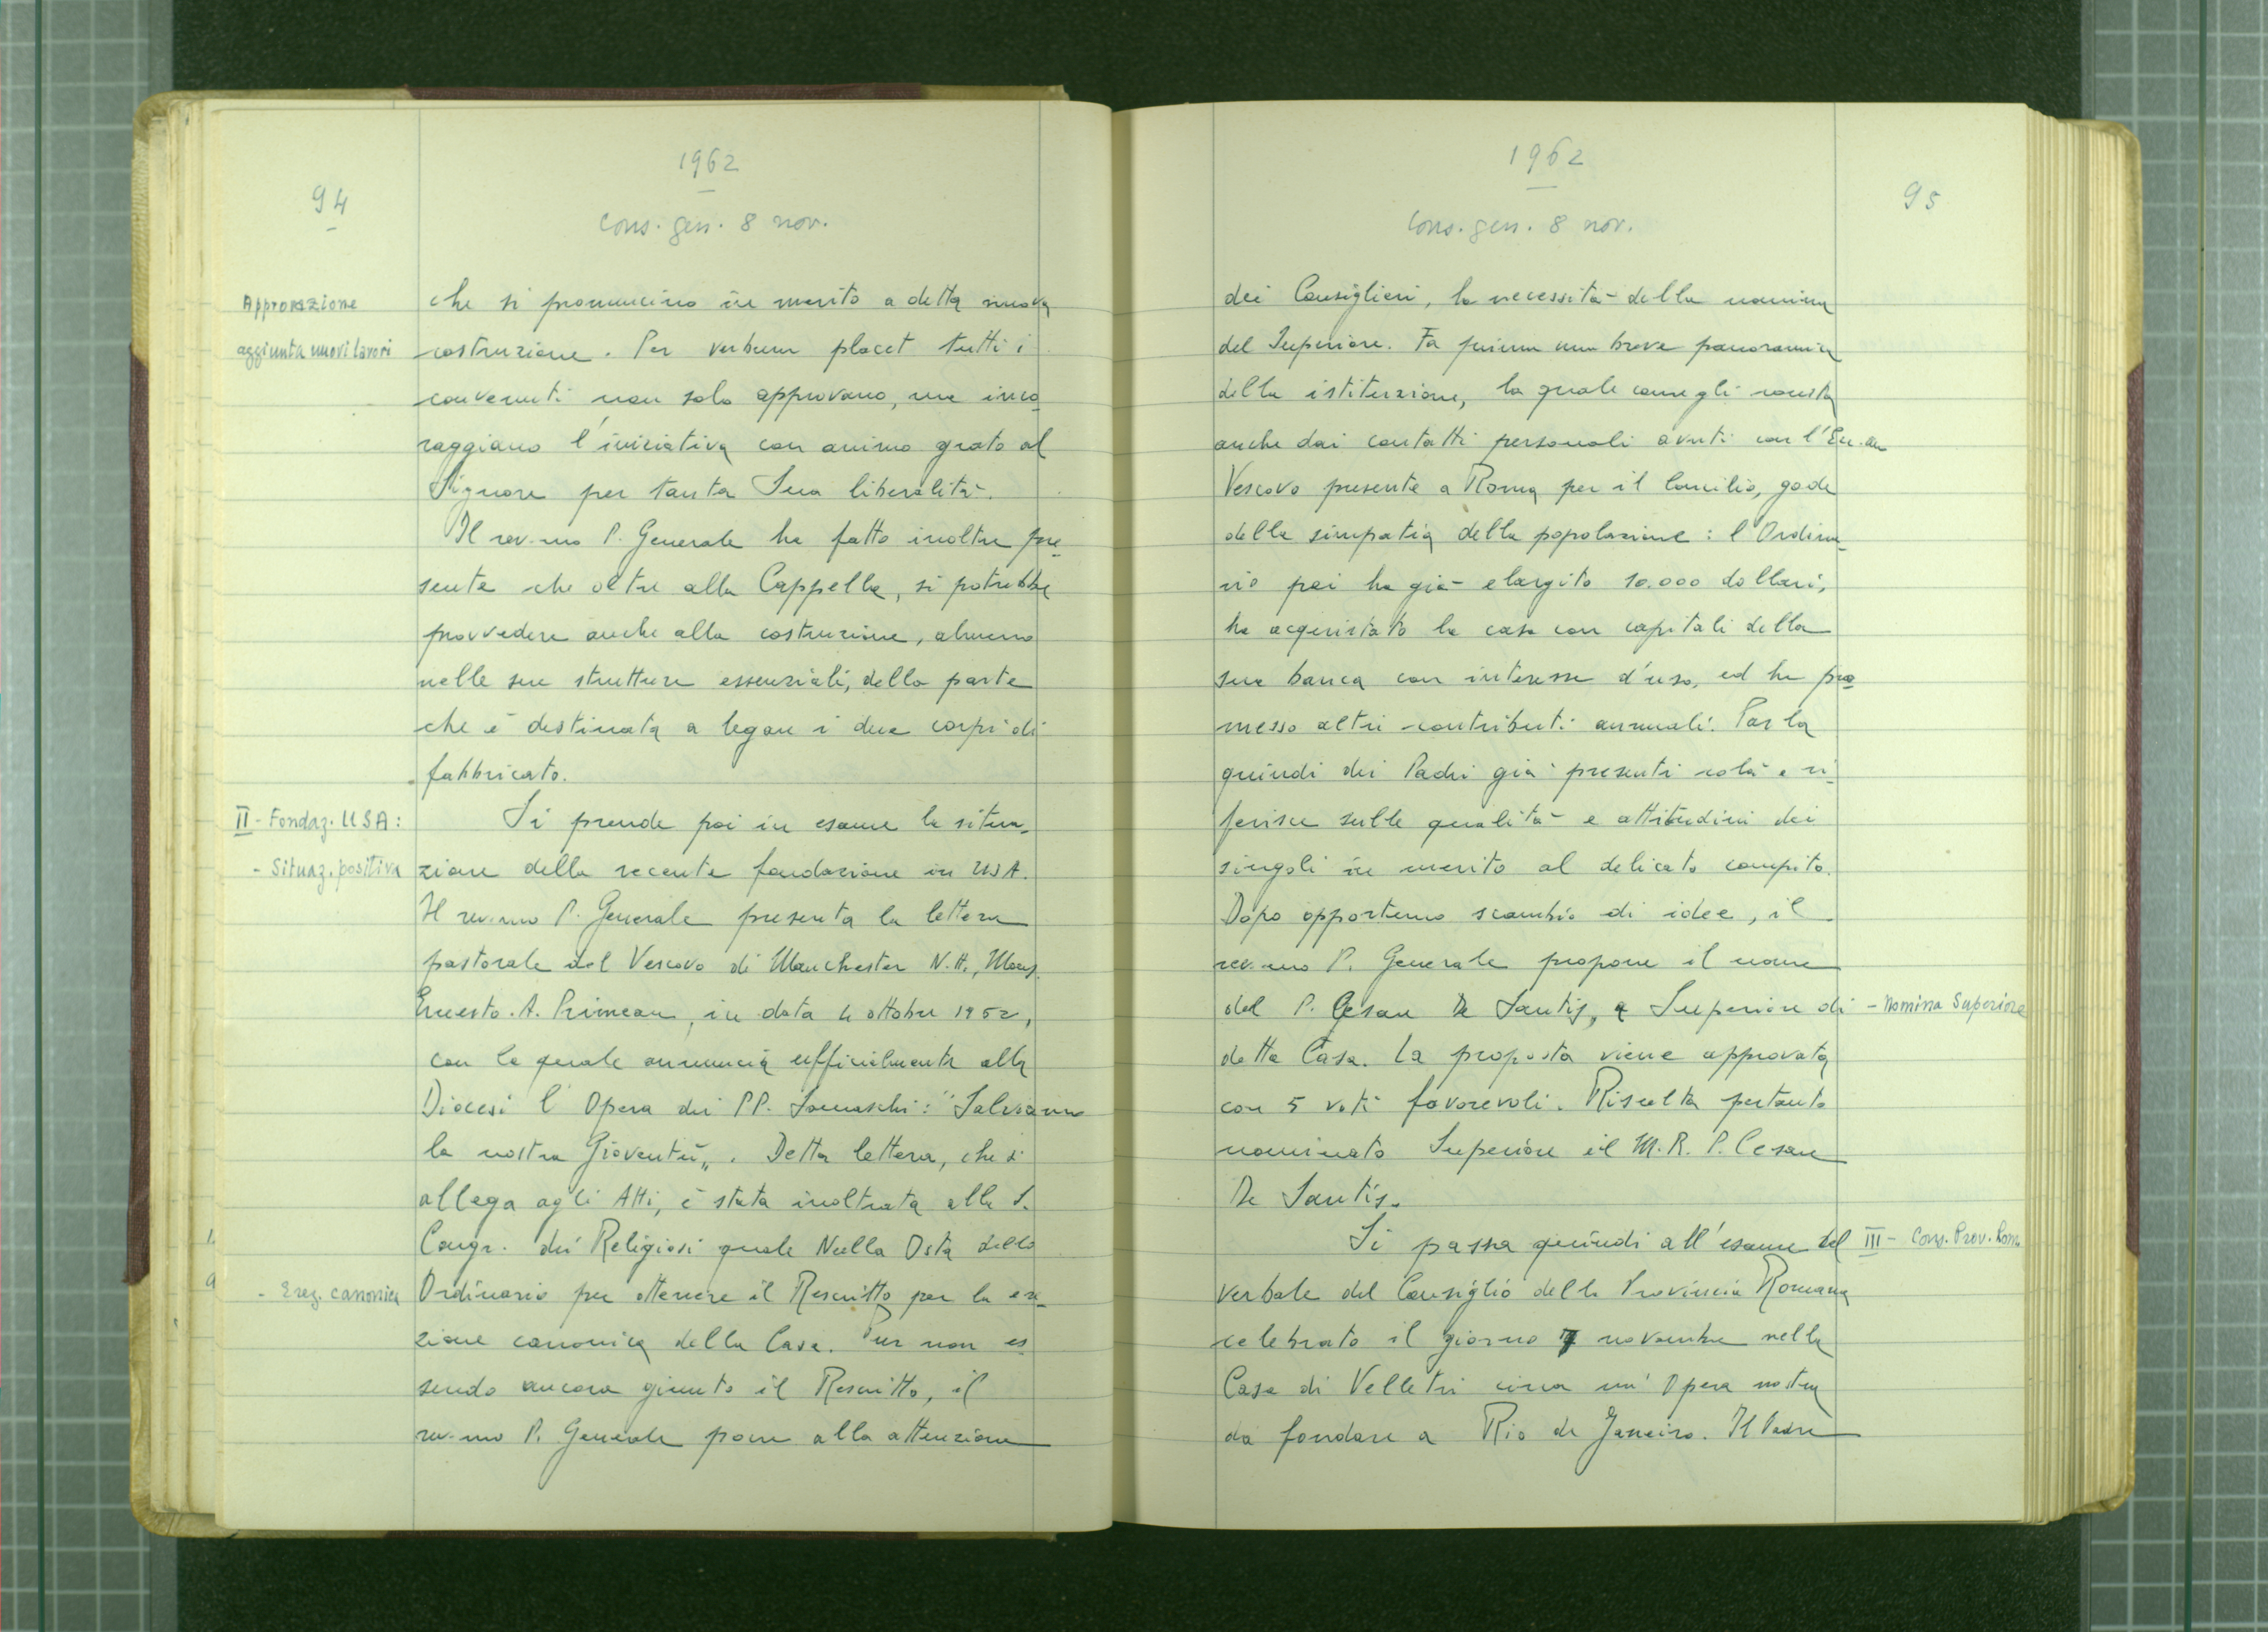 94
1962
Cons. gen. 8 nov.
Approvazione
aggiunta nuovi lavori
che si pronuncino in merito a detta nuova
costruzione. Per verbum placet tutti i
convenuti non solo approvano, ma inco
raggiano l'iniziativa con animo grato al
Signore per tanta Sua liberalità.
Il rev.mo P. Generale ha fatto inoltre pre
sente che oltre alla Cappella, si potrebbe
provvedere anche alla costruzione, almeno
nelle sue strutture essenziali, della parte
che è destinata a legare i due corpi di
fabbricato.
II - Fondaz. USA:
Si prende poi in esame la situa-
- Situaz. positiva
zione della recente fondazione in USA.
Il rev.mo P. Generale presenta la lettera
pastorale del Vescovo di Manchester N.H., Mons.
Ernesto. A. Primeau, in data 4 ottobre 1952,
con la quale annuncia ufficialmente alla
Diocesi l'Opera dei PP. Somaschi: "Salviamo
la nostra Gioventù". Detta lettera, che si
allega agli Atti, è stata inoltrata alla S.
Congr. dei Religiosi quale Nulla Osta dello
- Erez. canonica
Ordinario per ottenere il Rescritto per la ere-
zione canonica della Casa. Pur non es
sendo ancora giunto il Rescritto, il
rev.mo P. Generale pone alla attenzione
1962
95
Cons. gen. 8 nov.
dei Consiglieri, la necessità della nomina
del Superiore. Fa prima una breve panoramica
della istituzione, la quale come gli consta
anche dai contatti personali avuti con l'Ecc.mo
Vescovo presente a Roma per il Concilio, gode
della simpatia della popolazione: l'Ordina-
rio poi ha già elargito 10.000 dollari,
ha acquistato la casa con capitali della
sua banca con interesse d'uso, ed ha pro
messo altri contributi annuali. Parla
quindi dei Padri già presenti colà e ri-
ferisce sulle qualità e attitudini dei
singoli in merito al delicato compito.
Dopo opportuno scambio di idee, il
rev.mo P. Generale propone il nome
del P. Cesare De Santis, a Superiore di
- Nomina Superiore
detta Casa. La proposta viene approvata
con 5 voti favorevoli. Risulta pertanto
nominato Superiore il M.R. P. Cesare
De Santis.
Si passa quindi all'esame del
III - Cons. Prov. Rom.
verbale del Consiglio della Provincia Romana
celebrato il giorno 7 novembre nella
Casa di Velletri circa un'Opera nostra
da fondare a Rio de Janeiro. Il Padre